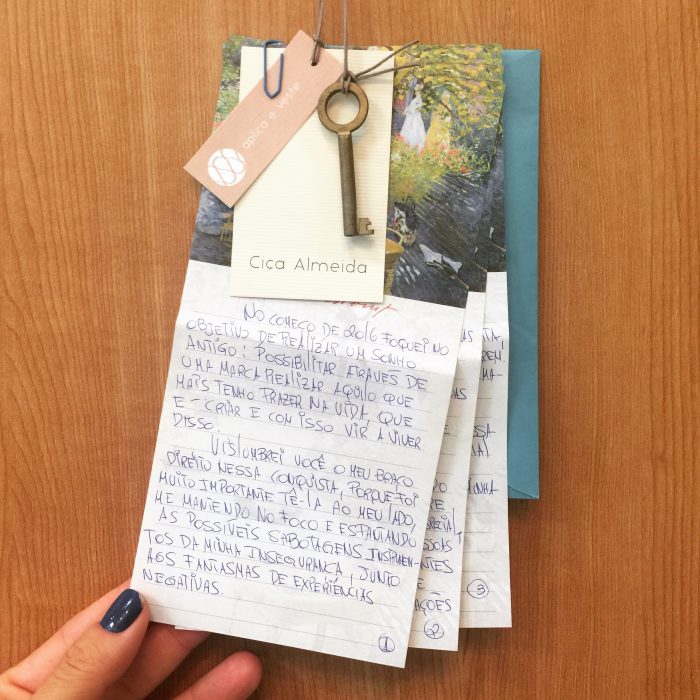 aplica e veste
Ciça Almeida
NO COMEÇO DE 2016 FOQUEI NO
OBJETIVO DE REALIZAR UM SONHO
ANTIGO: POSSIBILITAR ATRAVÉS DE
UMA MARCA REALIZAR AQUILO QUE
MAIS TENHO PRAZER NA VIDA, QUE
É - CRIAR E COM ISSO VIR A VIVER
DISSO.
VISLUMBREI VOCÊ O MEU BRAÇO
DIREITO NESSA CONQUISTA, PORQUE FOI
MUITO IMPORTANTE TÊ-LA AO MEU LADO,
ME MANTENDO NO FOCO E ESPANTANDO
AS POSSÍVEIS SABOTAGENS INSTRUMEN-
TOS DA MINHA INSEGURANÇA, JUNTO
AOS FANTASMAS DE EXPERIÊNCIAS
NEGATIVAS.
1
2
3